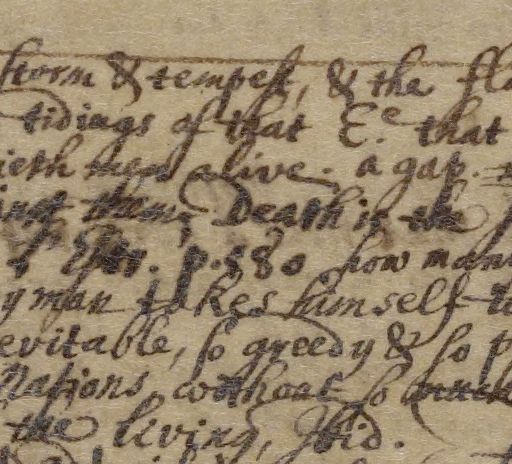 storm & tempest, & the fla
tidings of that Ee. that
ieth men alive. a gap.
ing them, Death is the
p. 580 how man
y man takes himself to
evitable, so greedy & so p
Nations without so
the living, Ibid.